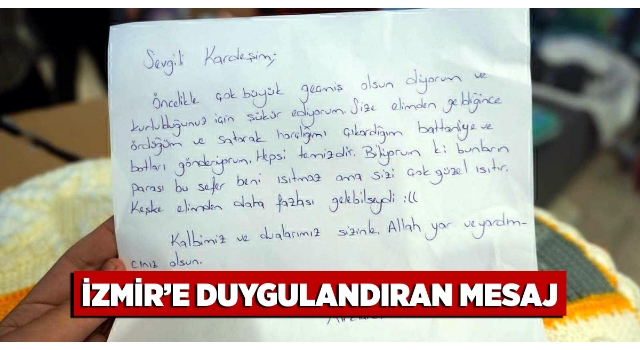 Sevgili Kardeşim;
Öncelikle çok büyük geçmiş olsun diyorum ve
kurtulduğunuz için şükür ediyorum. Size elimden geldiğince
ördüğüm ve satarak harçlığımı çıkardığım battaniye ve
botları gönderiyorum. Hepsi temizdir. Biliyorum ki bunların
parası bu sefer beni ısıtmaz ama sizi çok güzel ısıtır.
Keşke elimden daha fazlası gelebilseydi :((
Kalbimiz ve dualarımız sizinle. Allah yar ve yardım-
cınız olsun.
İZMİR'E DUYGULANDIRAN MESAJ